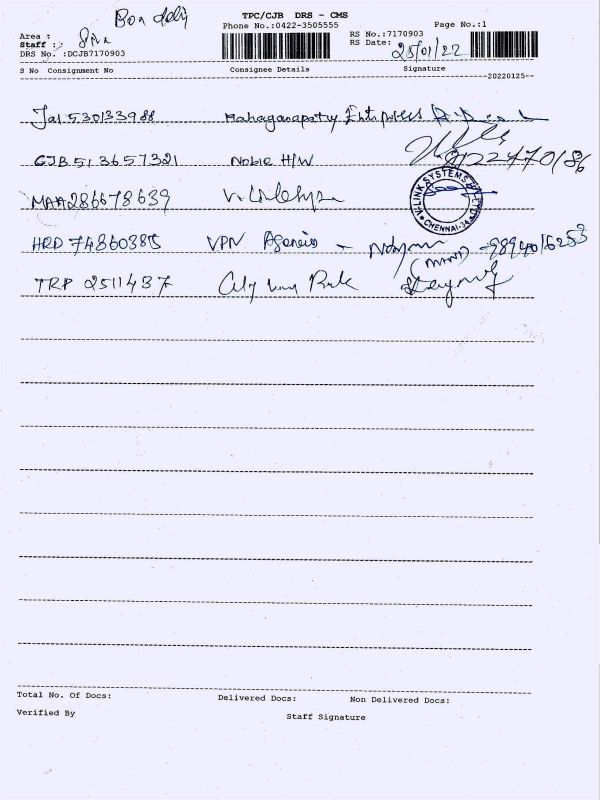 Box deliy
TPC/CJB DRS - CMS
Phone No.:0422-3505555
Page No.:1
Area :
Staff : Siva
DRS No. :DCJB7170903
RS No.:7170903
RS Date: 25/01/22
S No Consignment No Consignee Details Signature
--20220125--
Jai 530133988 Mahaganapathy Enterprises
CJB 513657321 Noble H/W 9122470186
MAA286678639 V. Link Sys
V.LINK SYSTEMS P LTD CHENNAI-34
HRD 74860385 VPN Agencies - (MANI) -9894016253
TRP 2511437 City Bank
Total No. Of Docs: Delivered Docs: Non Delivered Docs:
Verified By Staff Signature